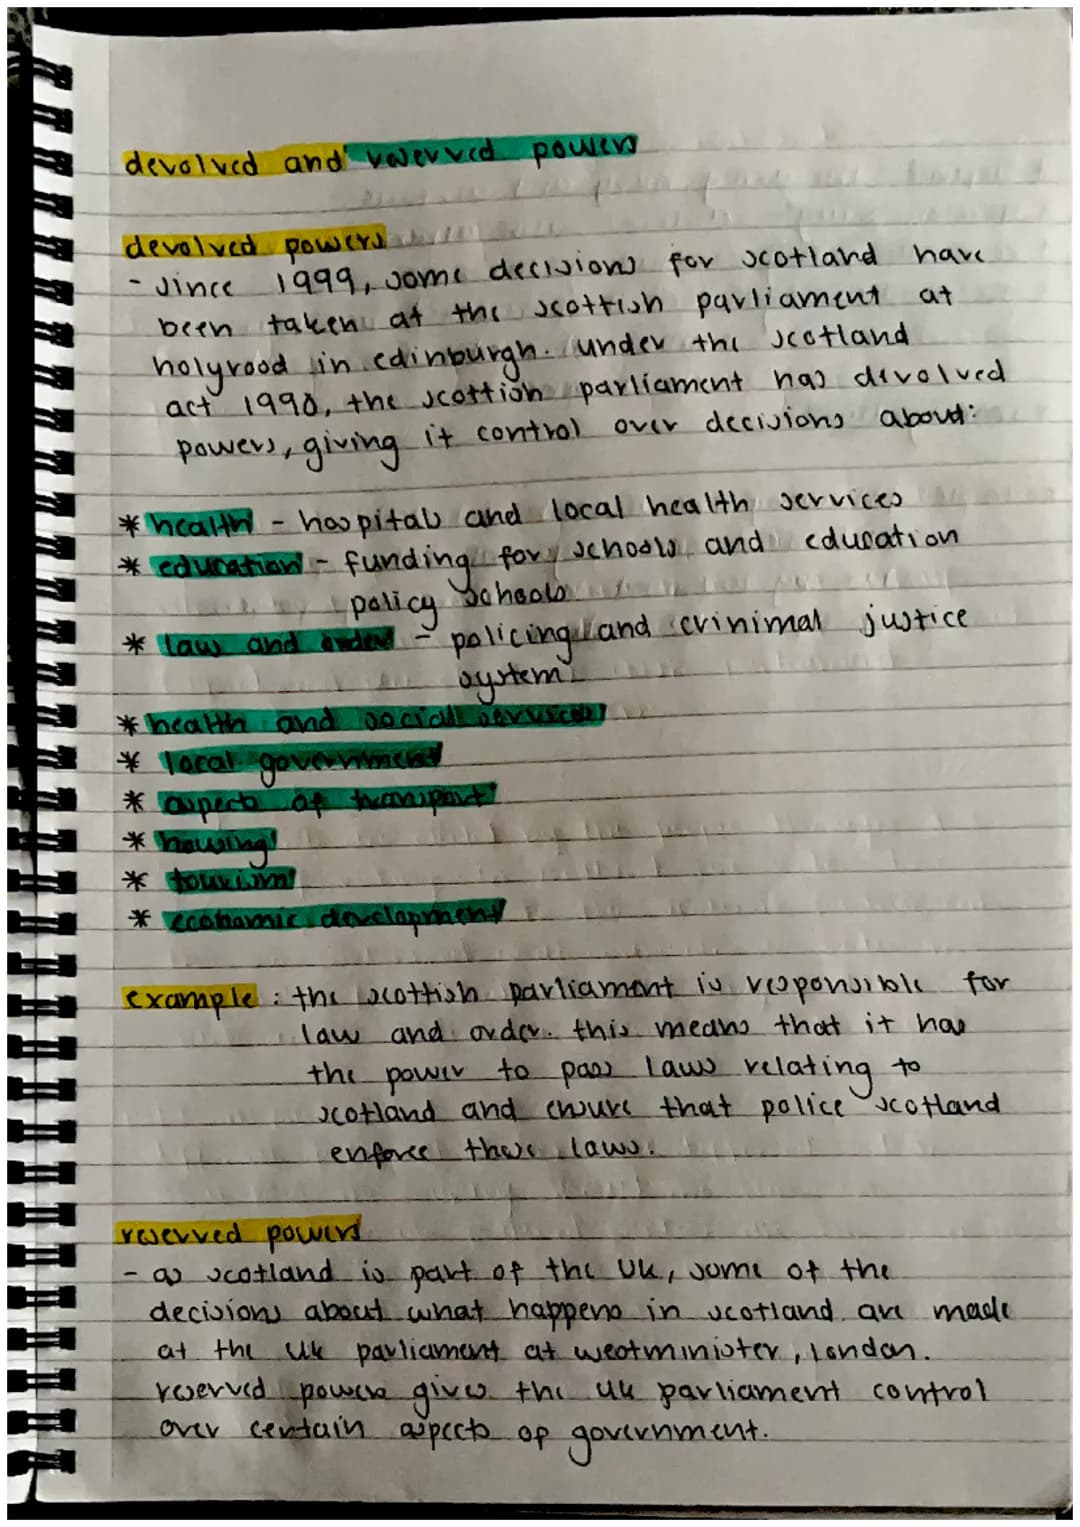 devolved and reserved powers
devolved powers
- since 1999, some decisions for scotland have
been taken at the scottish parliament at
holyrood in edinburgh. under the scotland
act 1998, the scottish parliament has devolved
powers, giving it control over decisions about:
* health - hospitals and local health services
* education - funding for schools and education
policy schools
* law and order - policing and crinimal justice
system
* health and social services
* local government
* aspects of transport
* housing
* tourism
* economic development
example : the scottish parliament is responsible for
law and order. this means that it has
the power to pass laws relating to
scotland and ensure that police scotland
enforce these laws.
reserved powers
- as scotland is part of the UK, some of the
decisions about what happens in scotland are made
at the uk parliament at westminister, london.
reserved powers gives the uk parliament control
over certain aspects of government.